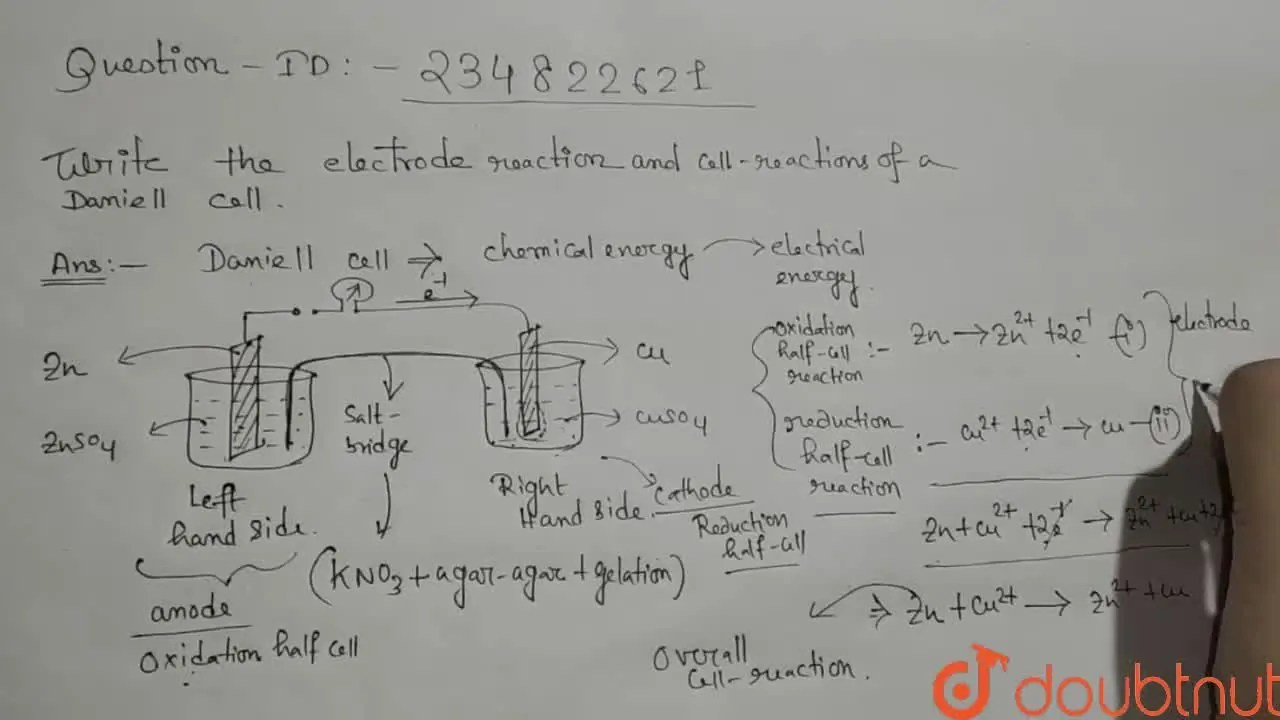 Question - ID : - 234822621
Write the electrode reaction and cell-reactions of a
Daniell cell.
Ans :- Daniell cell ⇒ chemical energy → electrical
energy.
e⁻¹
Zn
ZnSO4
Salt-
bridge
Cu
CuSO4
Left
hand side.
Right
Hand side.
Cathode
Reduction
half-cell
(KNO3 + agar-agar + gelation)
anode
Oxidation half cell
oxidation
half-cell :- Zn → Zn²⁺ + 2e⁻¹ -(i)
reaction
electrode
reduction
half-cell :- Cu²⁺ + 2e⁻¹ → Cu -(ii)
reaction
Zn + Cu²⁺ + 2e⁻¹ → Zn²⁺ + Cu + 2
⇒ Zn + Cu²⁺ → Zn²⁺ + Cu
Overall
Cell-reaction.
doubtnut